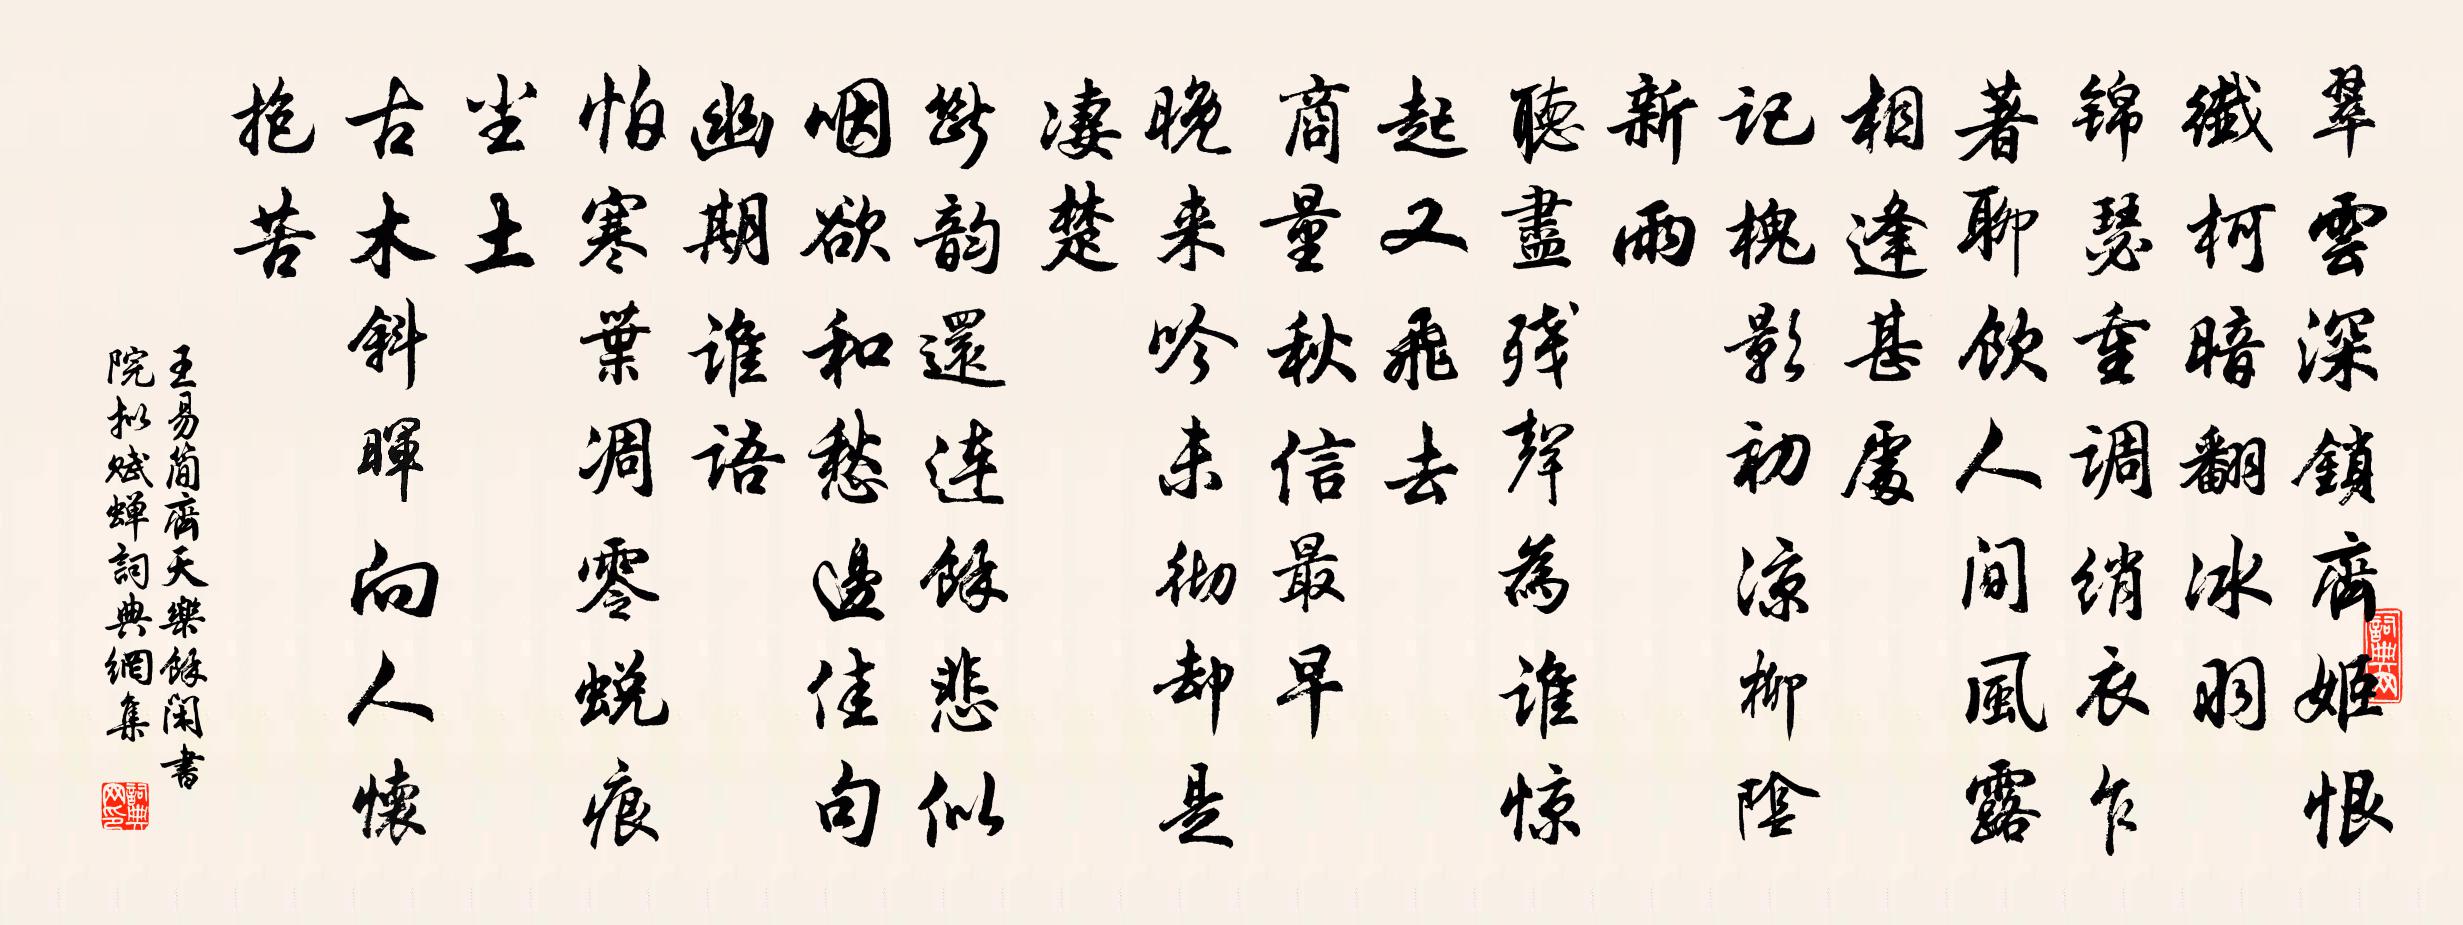 翠雲深鎖齊姬恨
纖柯暗翻冰羽
锦瑟重调绡衣乍
著聊飲人间風露
相逢甚處
记槐影初涼柳陰
新雨
聽盡残聲為谁惊
起又飛去
商量秋信最早
晚来吟未彻却是
凄楚
斷韵還连餘悲似
咽欲和愁邊佳句
幽期谁语
怕寒葉凋零蜕痕
尘土
古木斜暉向人懷
抱苦
王易简齊天樂餘闲書
院拟赋蝉詞典網集
詞典网
詞典网印